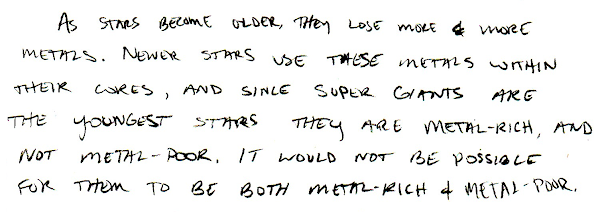 AS STARS BECOME OLDER, THEY LOSE MORE & MORE
METALS. NEWER STARS USE THESE METALS WITHIN
THEIR CORES, AND SINCE SUPER GIANTS ARE
THE YOUNGEST STARS THEY ARE METAL-RICH, AND
NOT METAL-POOR. IT WOULD NOT BE POSSIBLE
FOR THEM TO BE BOTH METAL-RICH & METAL-POOR.